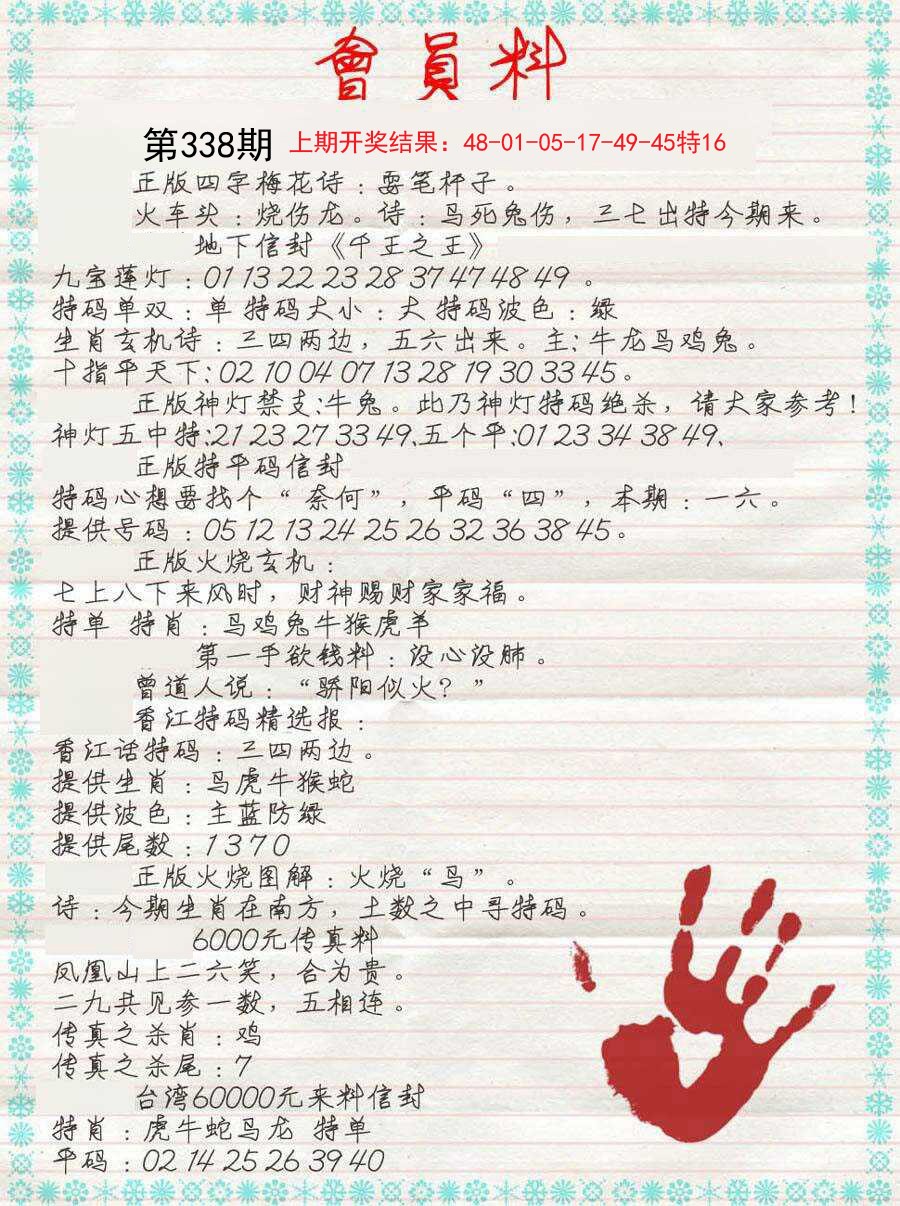 會員料
第338期 上期开奖结果：48-01-05-17-49-45特16
正版四字梅花诗：耍笔杆子。
火车头：烧伤龙。诗：马死兔伤，三七出特今期来。
地下信封《千王之王》
九宝莲灯：01 13 22 23 28 37 47 48 49 。
特码单双：单 特码大小：大 特码波色：绿
生肖玄机诗：三四两边，五六出来。主:牛龙马鸡兔。
十指平天下:02 10 04 07 13 28 19 30 33 45。
正版神灯禁支:牛兔。此乃神灯特码绝杀，请大家参考！
神灯五中特:21 23 27 33 49、五个平:01 23 34 38 49、
正版特平码信封
特码心想要找个“奈何”，平码“四”，本期：一六。
提供号码：05 12 13 24 25 26 32 36 38 45。
正版火烧玄机：
七上八下来风时，财神赐财家家福。
特单 特肖：马鸡兔牛猴虎羊
第一手欲钱料：没心没肺。
曾道人说：“骄阳似火？”
香江特码精选报：
香江话特码：三四两边。
提供生肖：马虎牛猴蛇
提供波色：主蓝防绿
提供尾数：1 3 7 0
正版火烧图解：火烧“马”。
诗：今期生肖在南方，土数之中寻特码。
6000元传真料
凤凰山上二六笑，合为贵。
二九共见参一数，五相连。
传真之杀肖：鸡
传真之杀尾：7
台湾60000元来料信封
特肖：虎牛蛇马龙 特单
平码：02 14 25 26 39 40